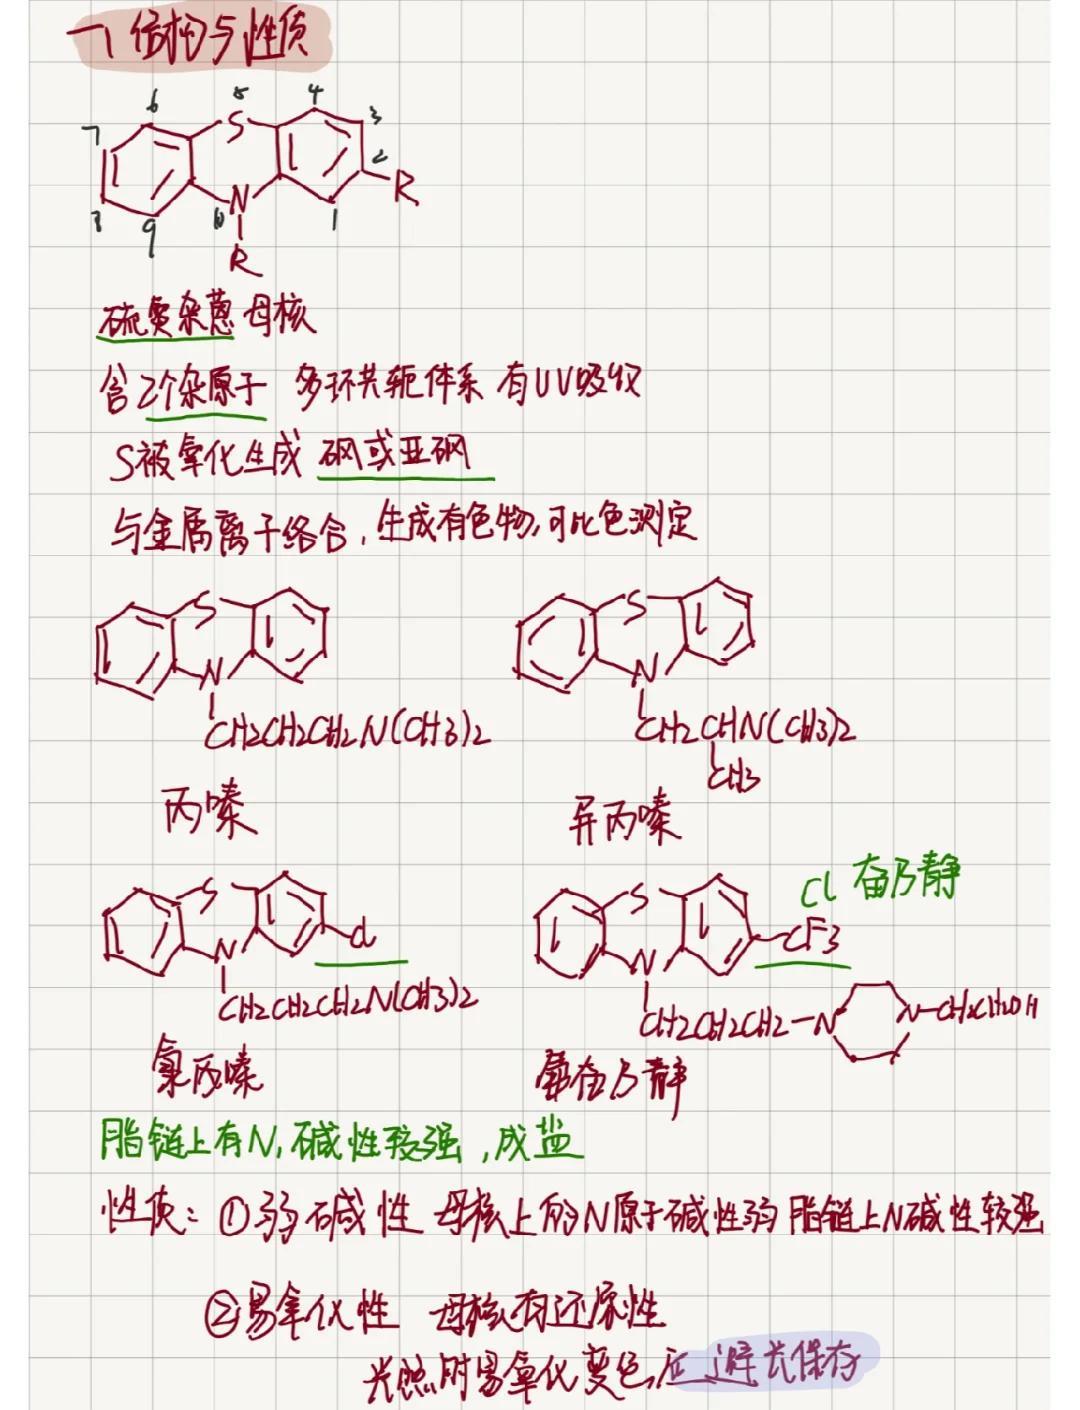 一、结构与性质
6 S 5 4 3
7 2 R
8 9 10 N 1
R
硫氮杂蒽母核
含2个杂原子 多环共轭体系 有UV吸收
S被氧化生成 砜或亚砜
与金属离子络合,生成有色物,可比色测定
S S
N N
CH2CH2CH2N(CH3)2 CH2CHN(CH3)2
CH3
丙嗪 异丙嗪
Cl 奋乃静
S S
N Cl N CF3
CH2CH2CH2N(CH3)2 CH2CH2CH2-N N-CH2CH2OH
氯丙嗪 氟奋乃静
脂链上有N,碱性较强,成盐
性质:①弱碱性 母核上的N原子碱性弱 脂链上N碱性较强
②易氧化性 母核有还原性
光照时易氧化变色,应避光保存